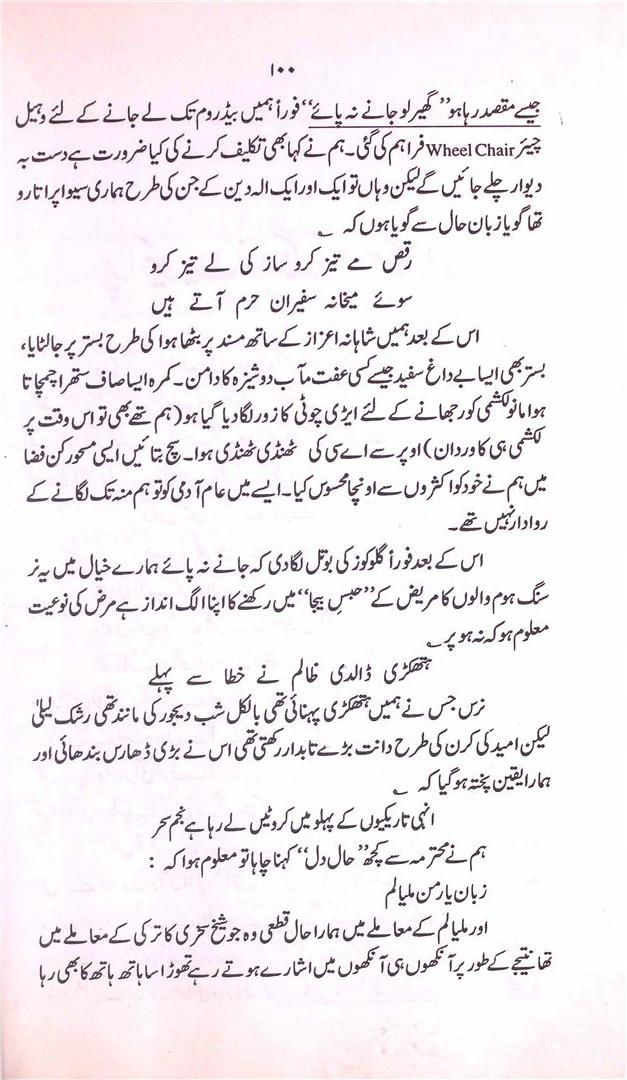 ۱۰۰
جیسے مقصد رہا ہو ”گھیر لو جانے نہ پائے“ فوراً ہمیں بیڈ روم تک لے جانے کے لئے وہیل
چیئر Wheel Chair فراہم کی گئی۔ ہم نے کہا بھی تکلیف کرنے کی کیا ضرورت ہے دست بہ
دیوار چلے جائیں گے لیکن وہاں تو ایک اور ایک الہ دین کے جن کی طرح ہماری سیوا پر اتارو
تھا گویا زبان حال سے گویا ہوں کہ ؎
رقص مے تیز کرو ساز کی لے تیز کرو
سوئے میخانہ سفیران حرم آتے ہیں
اس کے بعد ہمیں شاہانہ اعزاز کے ساتھ مسند پر بٹھا ہوا کی طرح بستر پر جا لٹایا،
بستر بھی ایسا بے داغ سفید جیسے کسی عفت مآب دوشیزہ کا دامن۔ کمرہ ایسا صاف ستھرا چمچاتا
ہوا مانو لکشمی کو رجھانے کے لئے ایڑی چوٹی کا زور لگا دیا گیا ہو (ہم تھے بھی تو اس وقت پر
لکشمی ہی کا وردان) اوپر سے اے سی کی ٹھنڈی ٹھنڈی ہوا۔ سچ بتائیں ایسی مسحور کن فضا
میں ہم نے خود کو اکثروں سے اونچا محسوس کیا۔ ایسے میں عام آدمی کو تو ہم منہ تک لگانے کے
روادار نہیں تھے۔
اس کے بعد فوراً گلوکوز کی بوتل لگا دی کہ جانے نہ پائے ہمارے خیال میں یہ نر
سنگ ہوم والوں کا مریض کے ”حبسِ بیجا“ میں رکھنے کا اپنا الگ انداز ہے مرض کی نوعیت
معلوم ہو کہ نہ ہو پر ؎
ہتھکڑی ڈالدی ظالم نے خطا سے پہلے
نرس جس نے ہمیں ہتھکڑی پہنائی تھی بالکل شب دیجور کی مانند تھی رشک لیلیٰ
لیکن امید کی کرن کی طرح دانت بڑے تابدار رکھتی تھی اس نے بڑی ڈھارس بندھائی اور
ہمارا یقین پختہ ہو گیا کہ ؎
انہی تاریکیوں کے پہلو میں کروٹیں لے رہا ہے نجم سحر
ہم نے محترمہ سے کچھ ”حال دل“ کہنا چاہا تو معلوم ہوا کہ :
زبان یار من ملیالم
اور ملیالم کے معاملے میں ہمارا حال قطعی وہ جو شیخ سخری کا ترکی کے معاملے میں
تھا نتیجے کے طور پر آنکھوں ہی آنکھوں میں اشارے ہوتے رہے تھوڑا سا ہاتھ ہاتھ کا بھی رہا